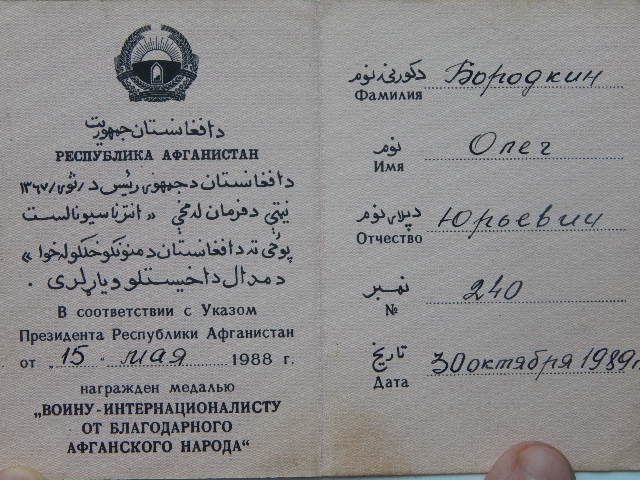 دافغانستان جمهوريت
РЕСПУБЛИКА АФГАНИСТАН
دافغانستان دجمهوری رئيس د / ثور / ١٣٦٧
نيټې دفرمان له مخې « انترناسيونالست
پوځي ته دافغانستان دمننوکوونکو خلکو لخوا »
دمدال داخيستلو وياړلری .
В соответствии с Указом
Президента Республики Афганистан
от „ 15 “ мая 1988 г.
награжден медалью
„ВОИНУ-ИНТЕРНАЦИОНАЛИСТУ
ОТ БЛАГОДАРНОГО
АФГАНСКОГО НАРОДА“
دکورنۍ نوم Бородкин
Фамилия
نوم Олег
Имя
دپلار نوم Юрьевич
Отчество
نمبر 240
№
تاريخ 30 октября 1989 г.
Дата